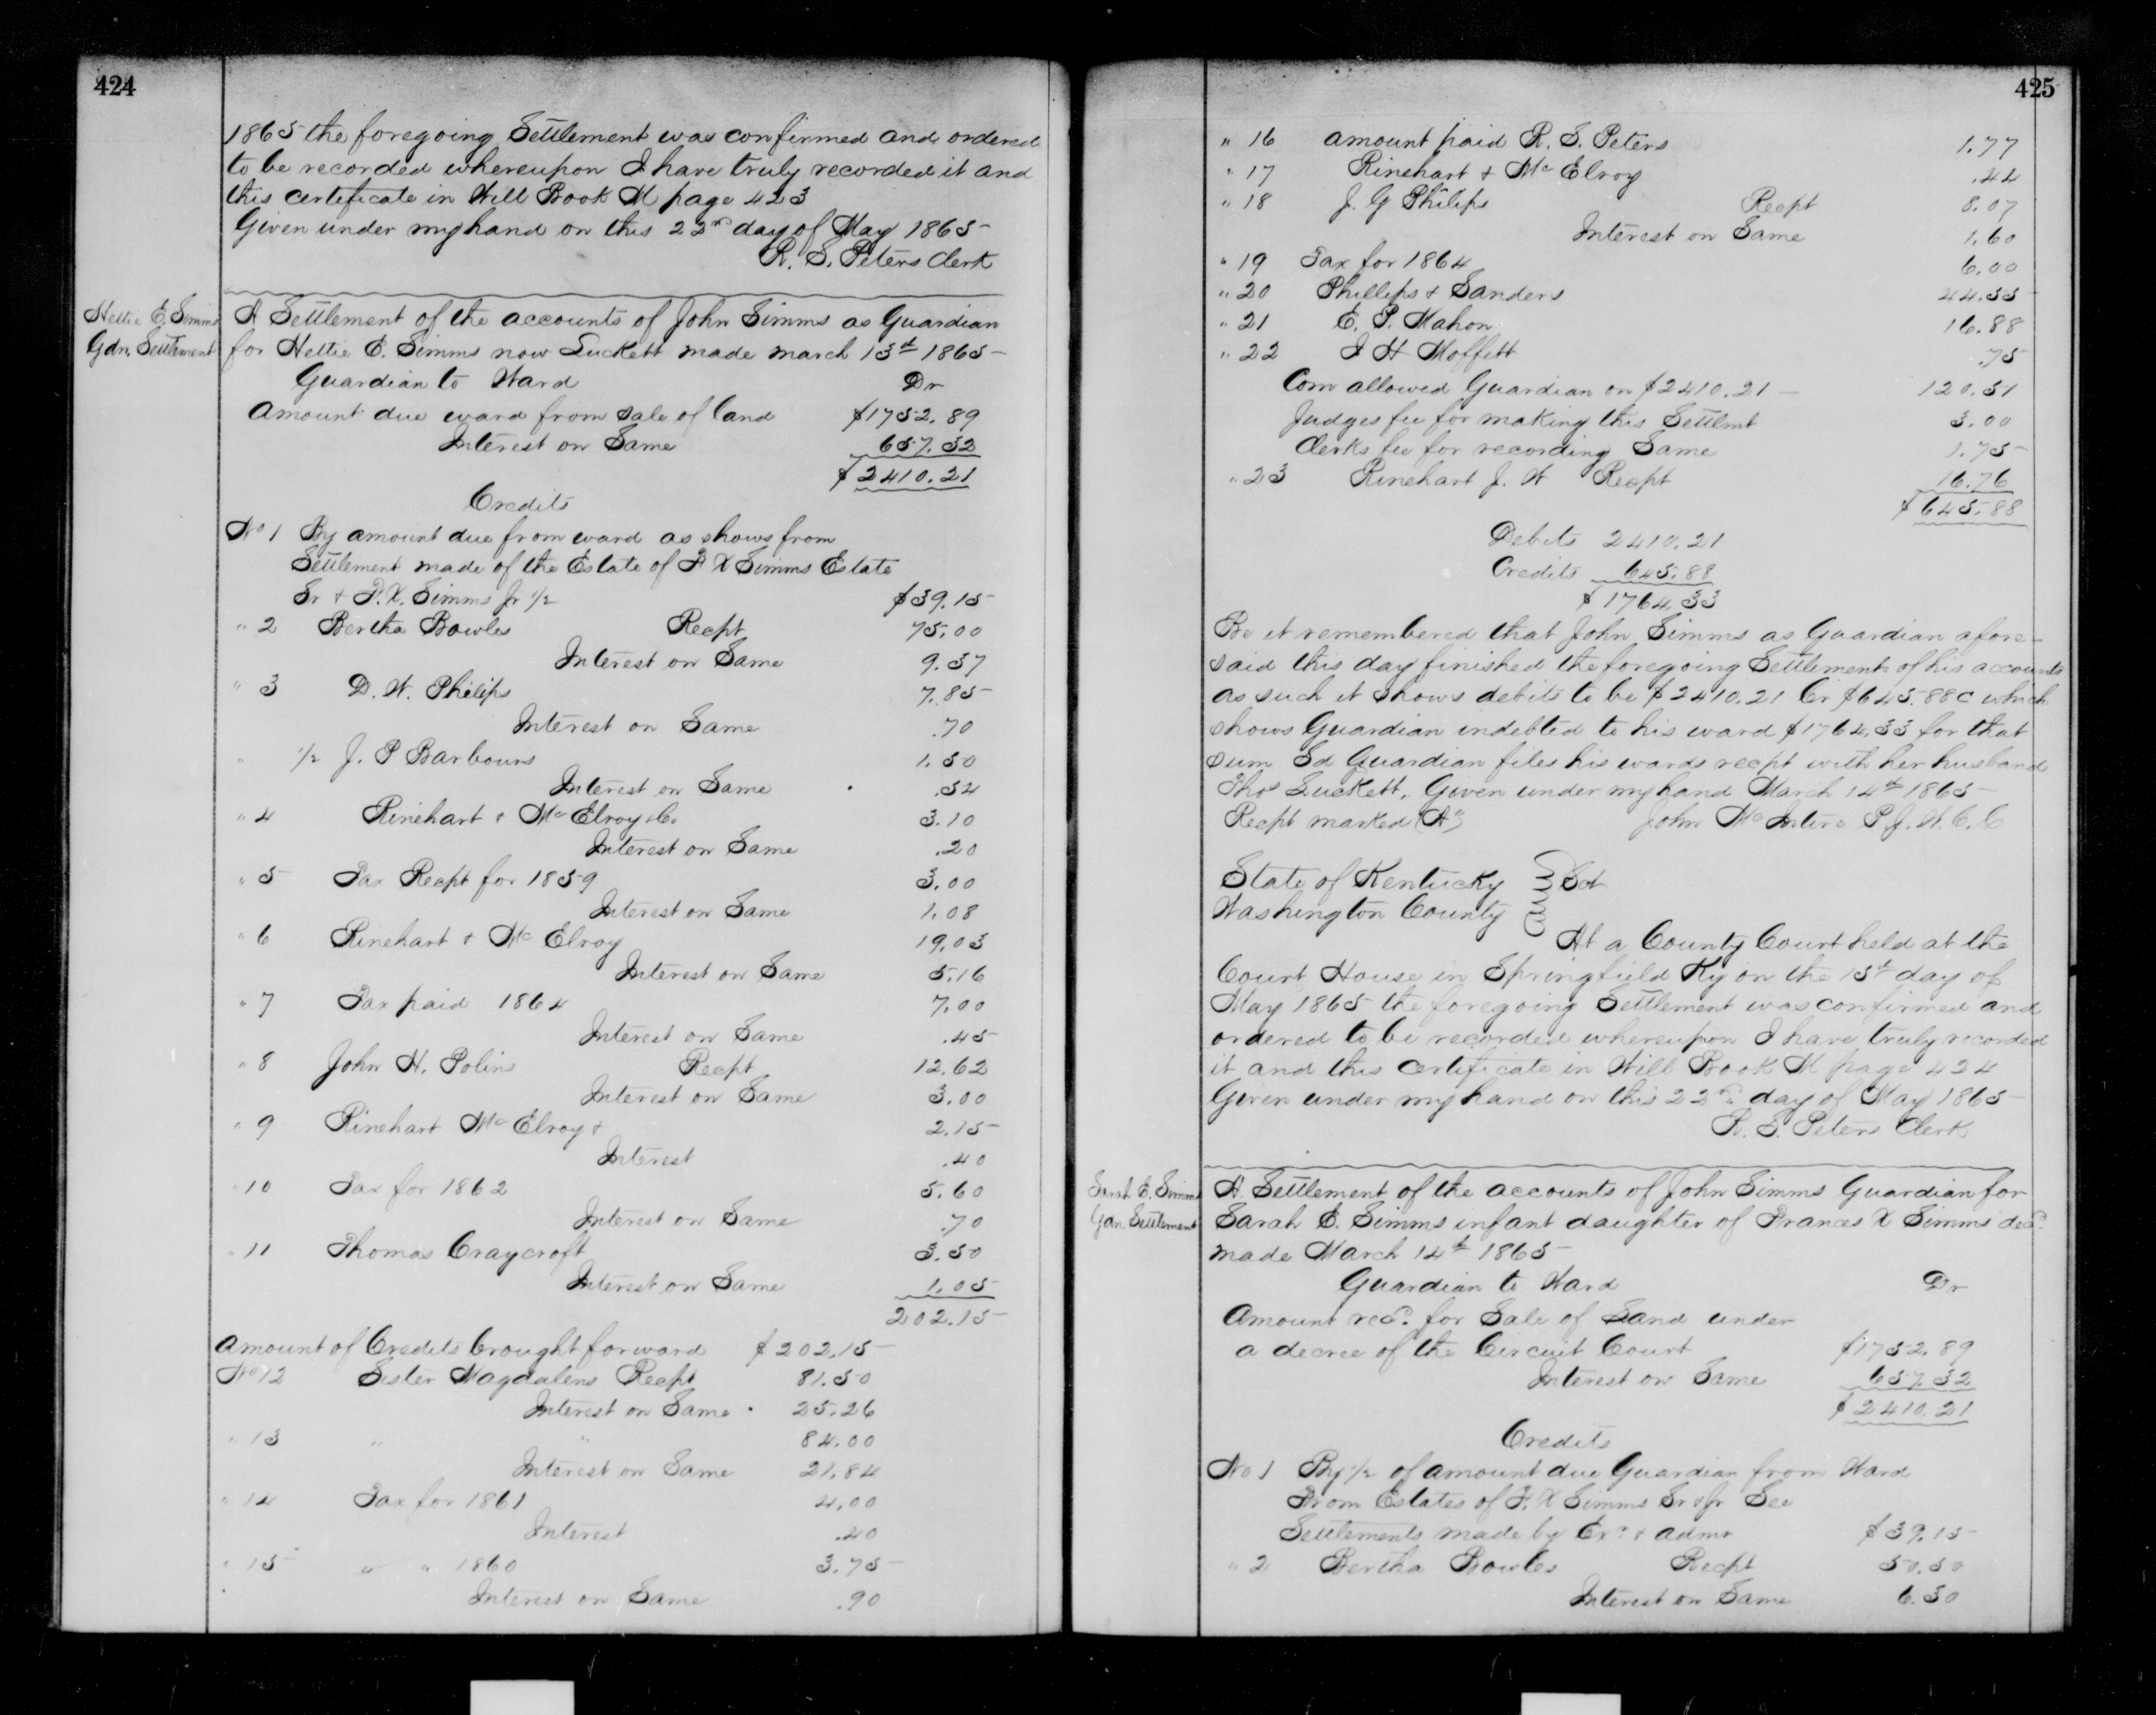 424
1865 the foregoing Settlement was confirmed and ordered
to be recorded whereupon I have truly recorded it and
this certificate in Will Book M page 423
Given under my hand on this 22nd day of May 1865
R. S. Peters Clerk
Hettie E. Simms
Gdn. Settlement
A Settlement of the accounts of John Simms as Guardian
for Hettie E. Simms now Luckett made march 13th 1865
Guardian to Ward Dr
Amount due ward from sale of land $1752.89
Interest on Same 657.32
$2410.21
Credits
No 1 By amount due from ward as shows from
Settlement made of the Estate of F X Simms Estate
Sr & F. X. Simms Jr 1/2 $39.15
" 2 Bertha Bowles Recpt 75.00
Interest on Same 9.37
" 3 D. W. Philips 7.85
Interest on Same .70
" 1/2 J. P Barbours 1.50
Interest on Same .54
" 4 Rinehart & McElroy & Co 3.10
Interest on Same .20
" 5 Tax Recpt for 1859 3.00
Interest on Same 1.08
" 6 Rinehart & Mc Elroy 19.03
Interest on Same 5.16
" 7 Tax paid 1864 7.00
Interest on Same .45
" 8 John H. Polins Recpt 12.62
Interest on Same 3.00
" 9 Rinehart McElroy & 2.15
Interest .40
" 10 Tax for 1862 5.60
Interest on Same .70
" 11 Thomas Craycroft 3.50
Interest on Same 1.05
202.15
Amount of Credits brought forward $202.15
No 12 Sister Magdalens Recpt 81.50
Interest on Same 25.26
" 13 " " 84.00
Interest on Same 21.84
" 14 Tax for 1861 4.00
Interest .40
" 15 " " 1860 3.75
Interest on Same .90
425
" 16 amount paid R. S. Peters 1.77
" 17 Rinehart & McElroy .44
" 18 J. G Philips Recpt 8.07
Interest on Same 1.60
" 19 Tax for 1864 6.00
" 20 Phillips & Sanders 44.55
" 21 E. P. Mahon 16.88
" 22 J H Moffett .75
Com allowed Guardian on $2410.21 120.51
Judges fee for making this Settlmt 3.00
Clerks fee for recording Same 1.75
" 23 Rinehart J. W Recpt 16.76
$645.88
Debits 2410.21
Credits 645.88
$1764.33
Be it remembered that John Simms as Guardian afore-
said this day finished the foregoing Settlement of his accounts
as such it shows debits to be $2410.21 Cr $645.88c which
shows Guardian indebted to his ward $1764.33 for that
sum Sd Guardian files his wards recpt with her husband
Thos Luckett. Given under my hand March 14th 1865
Recpt marked (A) John McIntire P. J. W. C. C
State of Kentucky } Sct
Washington County }
At a County Court held at the
Court House in Springfield Ky on the 15th day of
May 1865 the foregoing Settlement was confirmed and
ordered to be recorded whereupon I have truly recorded
it and this certificate in Will Book M page 424
Given under my hand on this 22nd day of May 1865
R. S. Peters Clerk
Sarah E. Simms
Gdn Settlement
A Settlement of the accounts of John Simms Guardian for
Sarah E. Simms infant daughter of Frances X Simms decd.
made March 14th 1865
Guardian to Ward Dr
Amount recd. for Sale of Land under
a decree of the Circuit Court $1752.89
Interest on Same 657.32
$2410.21
Credits
No 1 By 1/2 of amount due Guardian from Ward
From Estates of F. X Simms Sr & Jr See
Settlements made by Exr. & admr $39.15
" 2 Bertha Bowles Recpt 50.50
Interest on Same 6.30